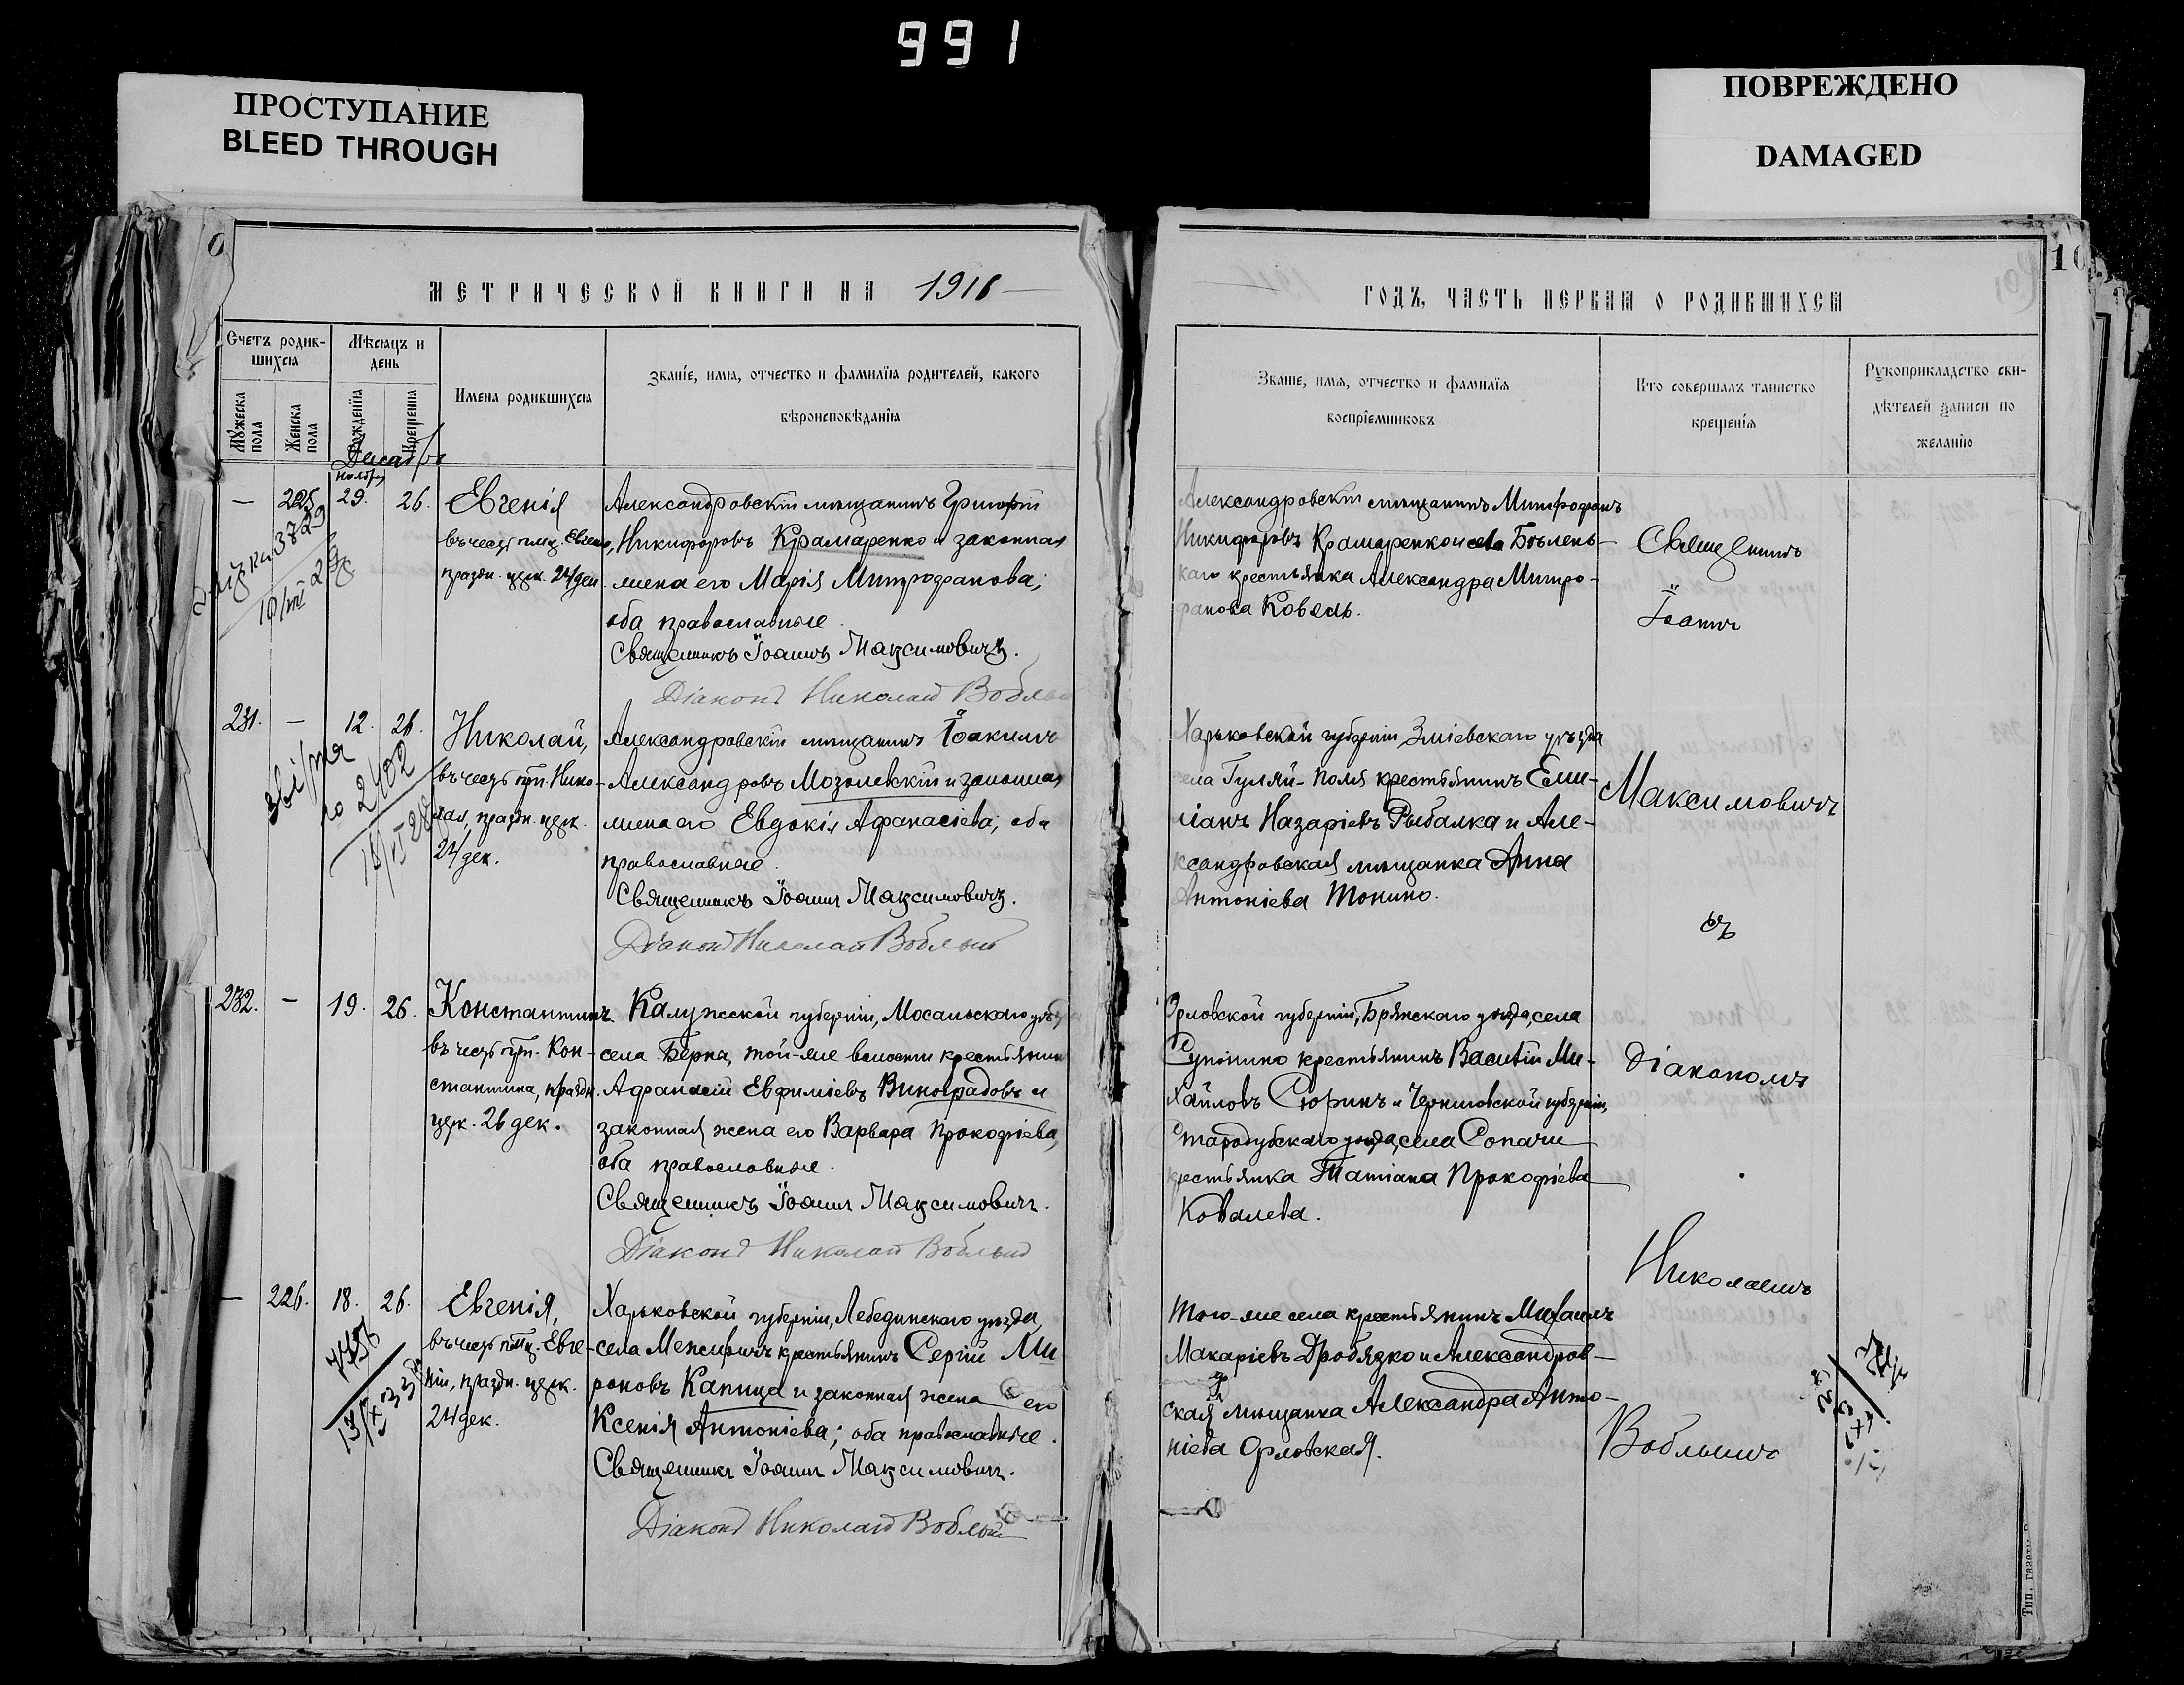 991
ПРОСТУПАНИЕ
BLEED THROUGH
ПОВРЕЖДЕНО
DAMAGED
МЕТРИЧЕСКОЙ КНИГИ НА 1916
Счетъ родив-
шихся
Мѣсяцъ и
день
Мужеска
пола
Женска
пола
Рожденія
Крещенія
Имена родившихся
Званіе, имя, отчество и фамилія родителей, какого
вѣроисповѣданія
Декабрь
ноябр.
— 225 29. 26. Евгенія
въ честь пмц. Евгеніи,
праздн. церк. 24 дек.
Александровскій мѣщанинъ Григорій
Никифоровъ Крамаренко и законная
жена его Марія Митрофанова;
оба православные.
Священникъ Іоаннъ Максимовичъ.
Діаконъ Николай Воблый
3729
231. — 12. 26. Николай,
въ честь прп. Нико-
лая, праздн. церк.
24 дек.
Александровскій мѣщанинъ Іоакимъ
Александровъ Мозолевскій и законная
жена его Евдокія Афанасіева; оба
православные.
Священникъ Іоаннъ Максимовичъ.
Діаконъ Николай Воблый
2402
232. — 19. 26. Константинъ
въ честь прп. Кон-
стантина, праздн.
церк. 26 дек.
Калужской губерніи, Мосальскаго уѣзда
села Берна, той-же волости крестьянинъ
Афанасій Евфиміевъ Виноградовъ и
законная жена его Варвара Прокофіева,
оба православные.
Священникъ Іоаннъ Максимовичъ.
Діаконъ Николай Воблый
— 226. 18. 26. Евгенія,
въ честь пмц. Евге-
ніи, праздн. церк.
24 дек.
Харьковской губерніи, Лебединскаго уѣзда,
села Межиричъ крестьянинъ Сергій Ми
роновъ Капица и законная жена его
Ксенія Антоніева; оба православные.
Священникъ Іоаннъ Максимовичъ.
Діаконъ Николай Воблый
10
ГОДЪ, ЧАСТЬ ПЕРВАЯ О РОДИВШИХСЯ
Званіе, имя, отчество и фамилія
воспріемниковъ
Кто совершалъ таинство
крещенія
Рукоприкладство сви-
дѣтелей записи по
желанію
Александровскій мѣщанинъ Митрофанъ
Никифоровъ Крамаренко и села Бѣлень-
каго крестьянка Александра Митро-
фанова Ковель.
Харьковской губерніи, Зміевскаго уѣзда
села Гуляй-Поля крестьянинъ Еми-
ліанъ Назаріевъ Рыбалка и Але-
ксандровская мѣщанка Анна
Антоніева Тонино.
Орловской губерніи, Брянскаго уѣзда, села
Супонино крестьянинъ Василій Ми-
хайловъ Сюринъ и Черниговской губерніи,
Стародубскаго уѣзда, села Сопачи
крестьянка Татіана Прокофіева
Ковалева.
Того-же села крестьянинъ Михаилъ
Макаріевъ Дробязко и Александров-
ская мѣщанка Александра Анто-
ніева Орловская.
Священникъ
Іоаннъ
Максимовичъ
съ
Діакономъ
Николаемъ
Воблымъ